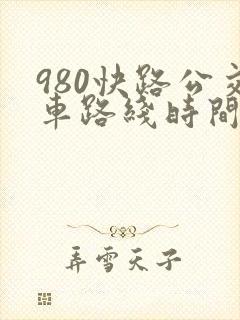 980快路公交
車路綫時間
弄雪天子